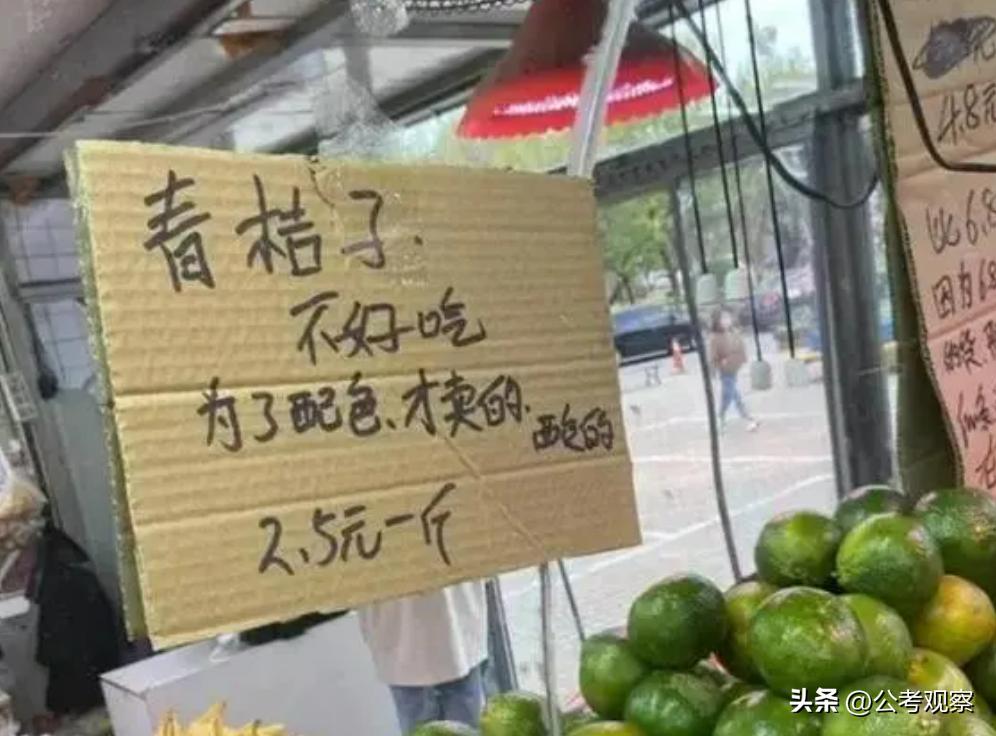 青桔子.
不好吃
为了配色、才卖的.配色的
2.5元一斤
元
4.8元
比6.8
因为6.8
头条 @公考观察